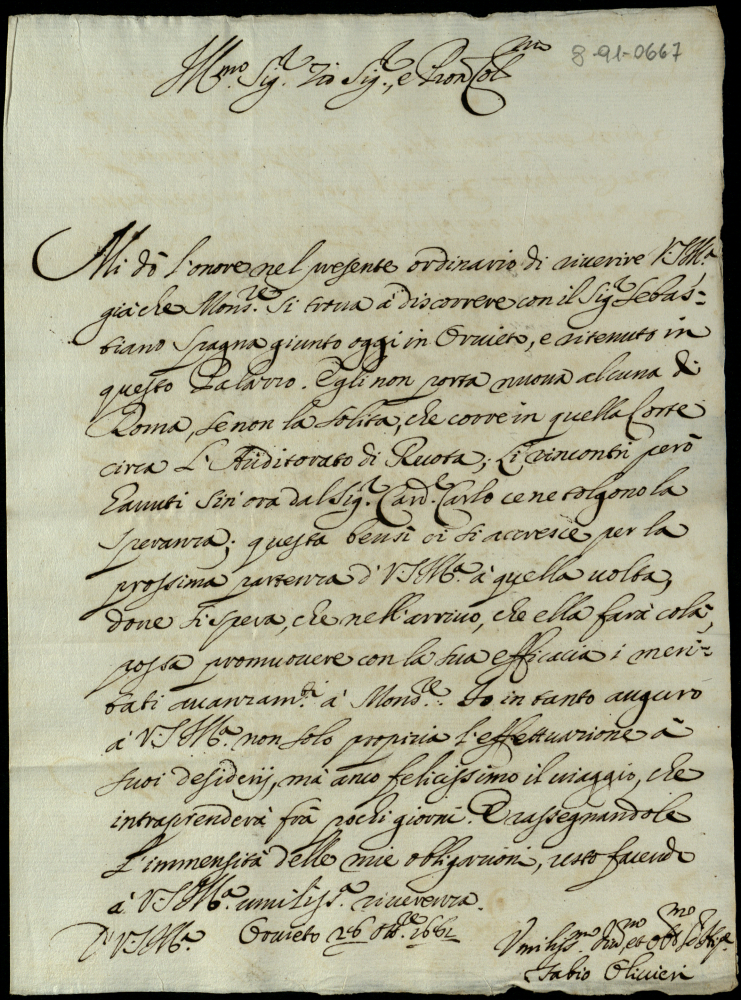 8-91-0667
Ill.mo Sig.r Zio Sig.r, e Pron Col.mo
Mi dò l'onore nel presente ordinario di riverire V.S.Ill.ma
già che Mons.re si trova à discorrere con il Sig.r Sebas=
tiano Spagna giunto oggi in Orvieto, e ritenuto in
questo Palazzo. Egli non porta nuova alcuna di
Roma, se non la solita, che corre in quella Corte
circa l'Auditorato di Ruota; Li rincontri però
havuti sin'ora dal Sig.r Card. Carlo ce ne tolgono la
speranza; questa bensì ci si accresce per la
prossima partenza d'V.S.Ill.ma à quella volta,
dove si spera, che nell'arrivo, che ella farà colà,
possa promuovere con la sua efficacia i meri=
tati avanzam.ti à Mons.re. Io in tanto auguro
à V.S.Ill.ma non solo propizia l'effettuazione à
suoi desiderij, mà anco felicissimo il viaggio, che
intraprenderà frà pochi giorni. E rassegnandole
l'immensità delle mie obligazioni, resto facendo
à V.S.Ill.ma umiliss.a riverenza.
D'V.S.Ill.ma Orvieto 26 Ott.re 1661
Umiliss.mo Ser.mo et Obb.mo
Fabio Olivieri